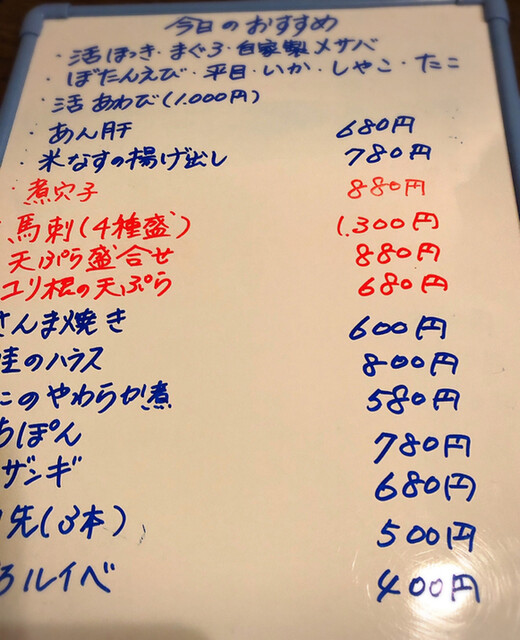 今日のおすすめ
・活ほっき・まぐろ・自家製〆サバ
・ぼたんえび・平目・いか・しゃこ・たこ
・活あわび(1.000円)
・あん肝 680円
・米なすの揚げ出し 780円
・煮穴子 880円
馬刺(4種盛) 1.300円
天ぷら盛合せ 880円
ユリ根の天ぷら 680円
さんま焼き 600円
鮭のハラス 800円
このやわらか煮 580円
ちぽん 780円
ザンギ 680円
先(3本) 500円
ろルイベ 400円